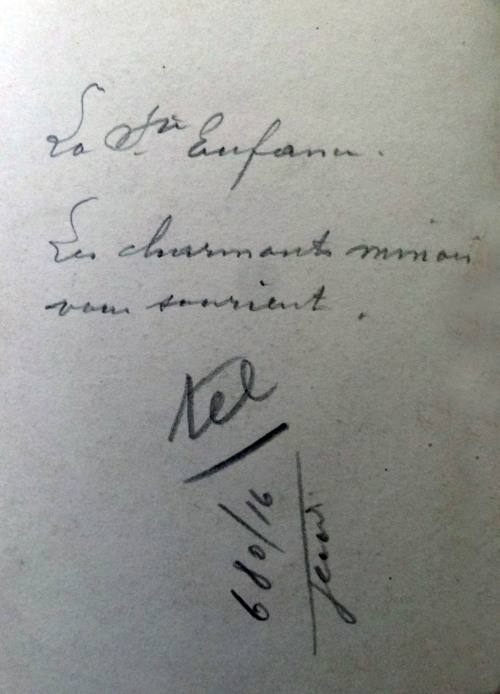 La Ste Enfance.
Les charmants minois
vous sourient.
tel
680/16
jeudi